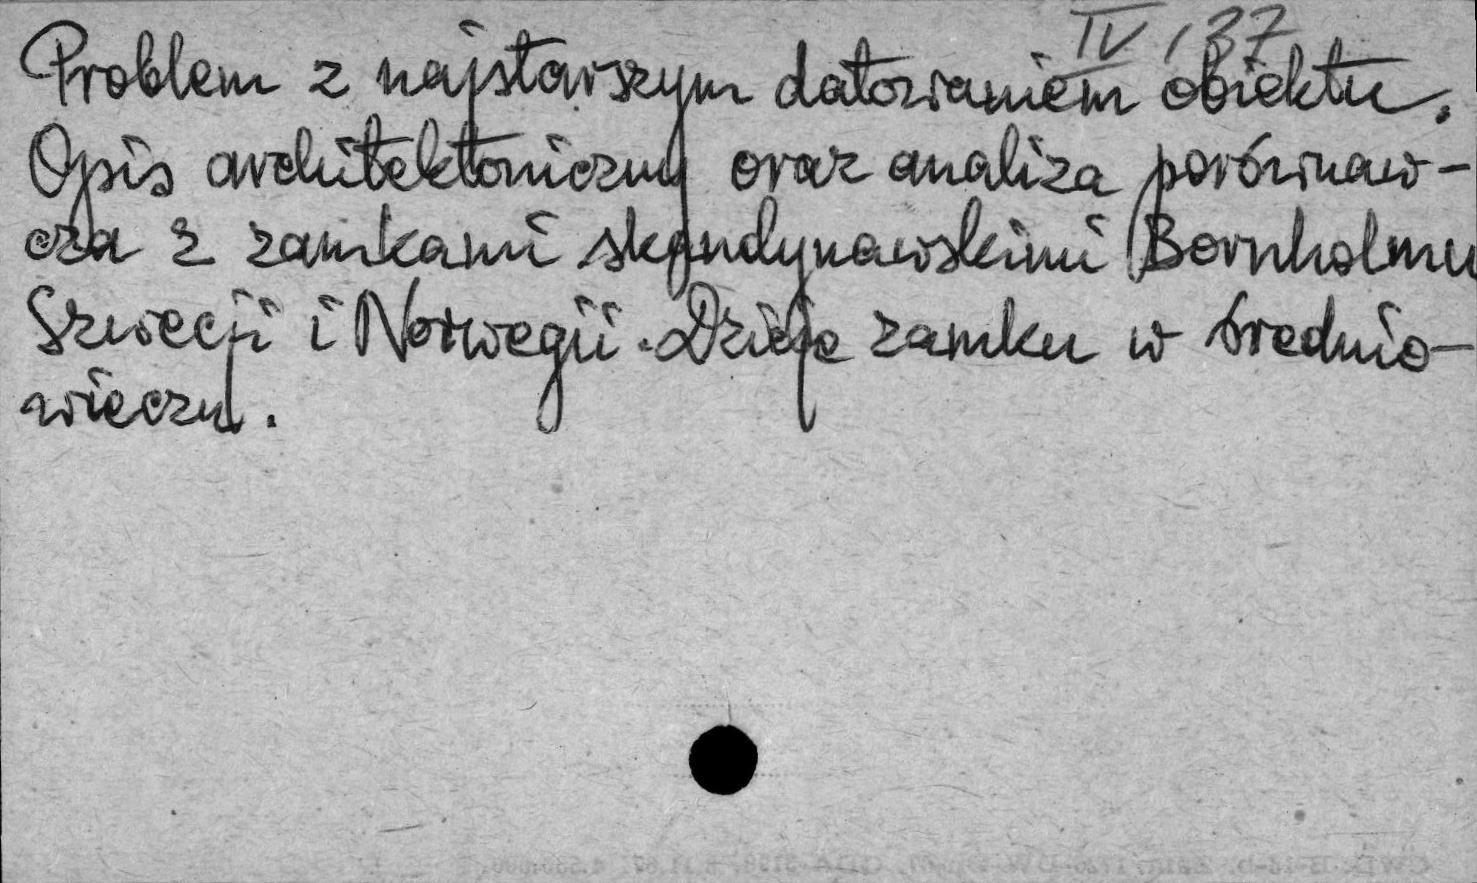 IV, 37
Problem z najstarszym datowaniem obiektu.
Opis architektoniczny oraz analiza porównaw-
cza z zamkami skandynawskimi Bornholmu
Szwecji i Norwegii. Dzieje zamku w średnio-
wieczu.